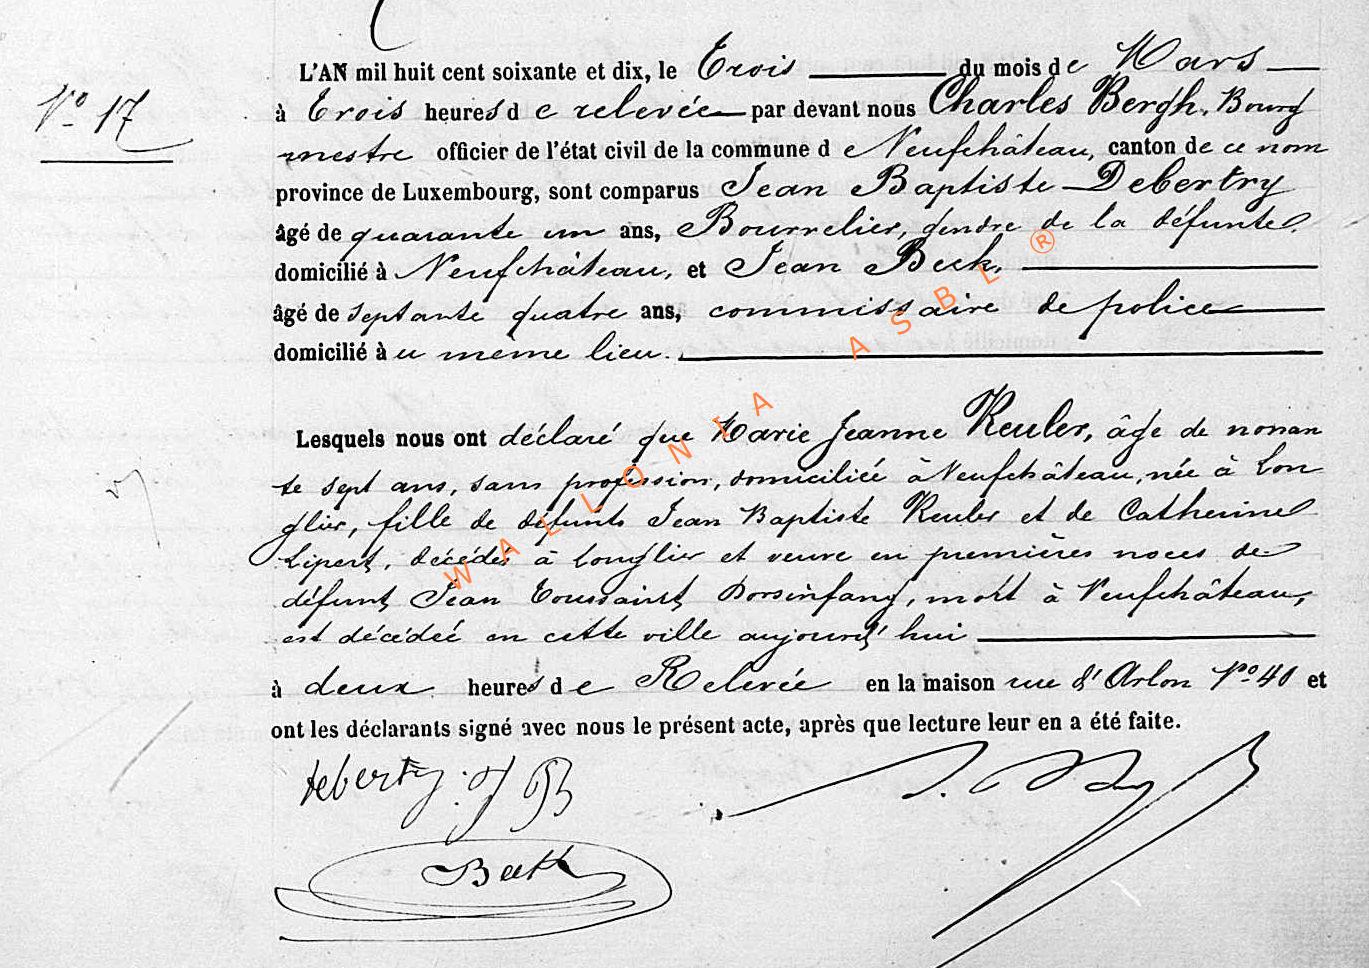 L'AN mil huit cent soixante et dix, le Trois du mois de Mars
Nº 17
à Trois heures de relevée par devant nous Charles Bergh, Bourg
mestre officier de l'état civil de la commune de Neufchâteau, canton de ce nom
province de Luxembourg, sont comparus Jean Baptiste Debertry
âgé de quarante un ans, Bourrelier, gendre de la défunte,
domicilié à Neufchâteau, et Jean Beck,
âgé de septante quatre ans, commissaire de police
domicilié à u même lieu.
WALLONIA ASBL ®
Lesquels nous ont déclaré que Marie Jeanne Keuler, âge de nonan
te sept ans, sans profession, domiciliée à Neufchâteau, née à Lon
glier, fille de défunts Jean Baptiste Keuler et de Catherine
Lipert, décédés à Longlier et veuve en premières noces de
défunt Jean Toussaint Dorsinfang, mort à Neufchâteau,
est décédée en cette ville aujourd'hui
à deux heures de Relevée en la maison rue d'Arlon Nº 40 et
ont les déclarants signé avec nous le présent acte, après que lecture leur en a été faite.
debertry
Beck